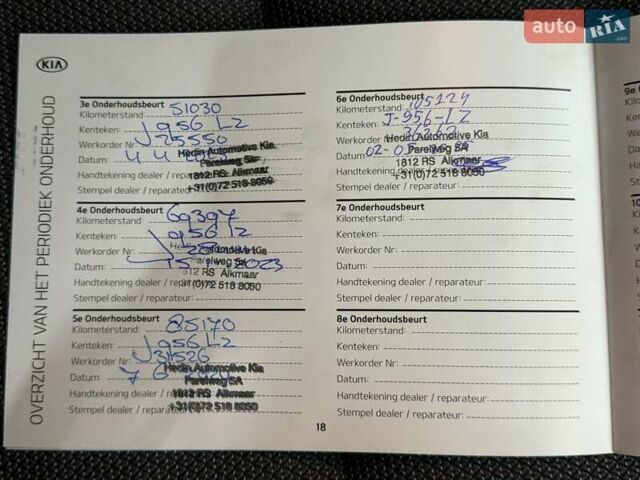 auto RIA.com
KIA
OVERZICHT VAN HET PERIODIEK ONDERHOUD
3e Onderhoudsbeurt
Kilometerstand: 51030
Kenteken: J956 LZ
Werkorder Nr: 25550
Datum:
Handtekening dealer / reparateur
Stempel dealer / reparateur
Hedin Automotive Kia
Parelweg 5a
1812 RS Alkmaar
+31(0)72 518 8050
4e Onderhoudsbeurt
Kilometerstand: 69397
Kenteken: J956 LZ
Werkorder Nr:
Datum: 2023
Handtekening dealer / reparateur:
Stempel dealer / reparateur:
Hedin Automotive Kia
Parelweg 5a
1812 RS Alkmaar
+31(0)72 518 8050
5e Onderhoudsbeurt
Kilometerstand: 85170
Kenteken: J956 LZ
Werkorder Nr: 31526
Datum: 7 6
Handtekening dealer / reparateur
Stempel dealer / reparateur
Hedin Automotive Kia
Parelweg 5A
1812 RS Alkmaar
+31(0)72 518 8050
6e Onderhoudsbeurt
Kilometerstand: 105124
Kenteken: J-956-LZ
Werkorder
Datum 02-0
Handtekening dealer
Stempel dealer / reparateur
Hedin Automotive Kia
Parelweg 5A
1812 RS Alkmaar
+31(0)72 518 8050
7e Onderhoudsbeurt
Kilometerstand:
Kenteken:
Werkorder Nr:
Datum:
Handtekening dealer / reparateur:
Stempel dealer / reparateur:
8e Onderhoudsbeurt
Kilometerstand:
Kenteken:
Werkorder Nr:
Datum:
Handtekening dealer / reparateur:
Stempel dealer / reparateur:
18